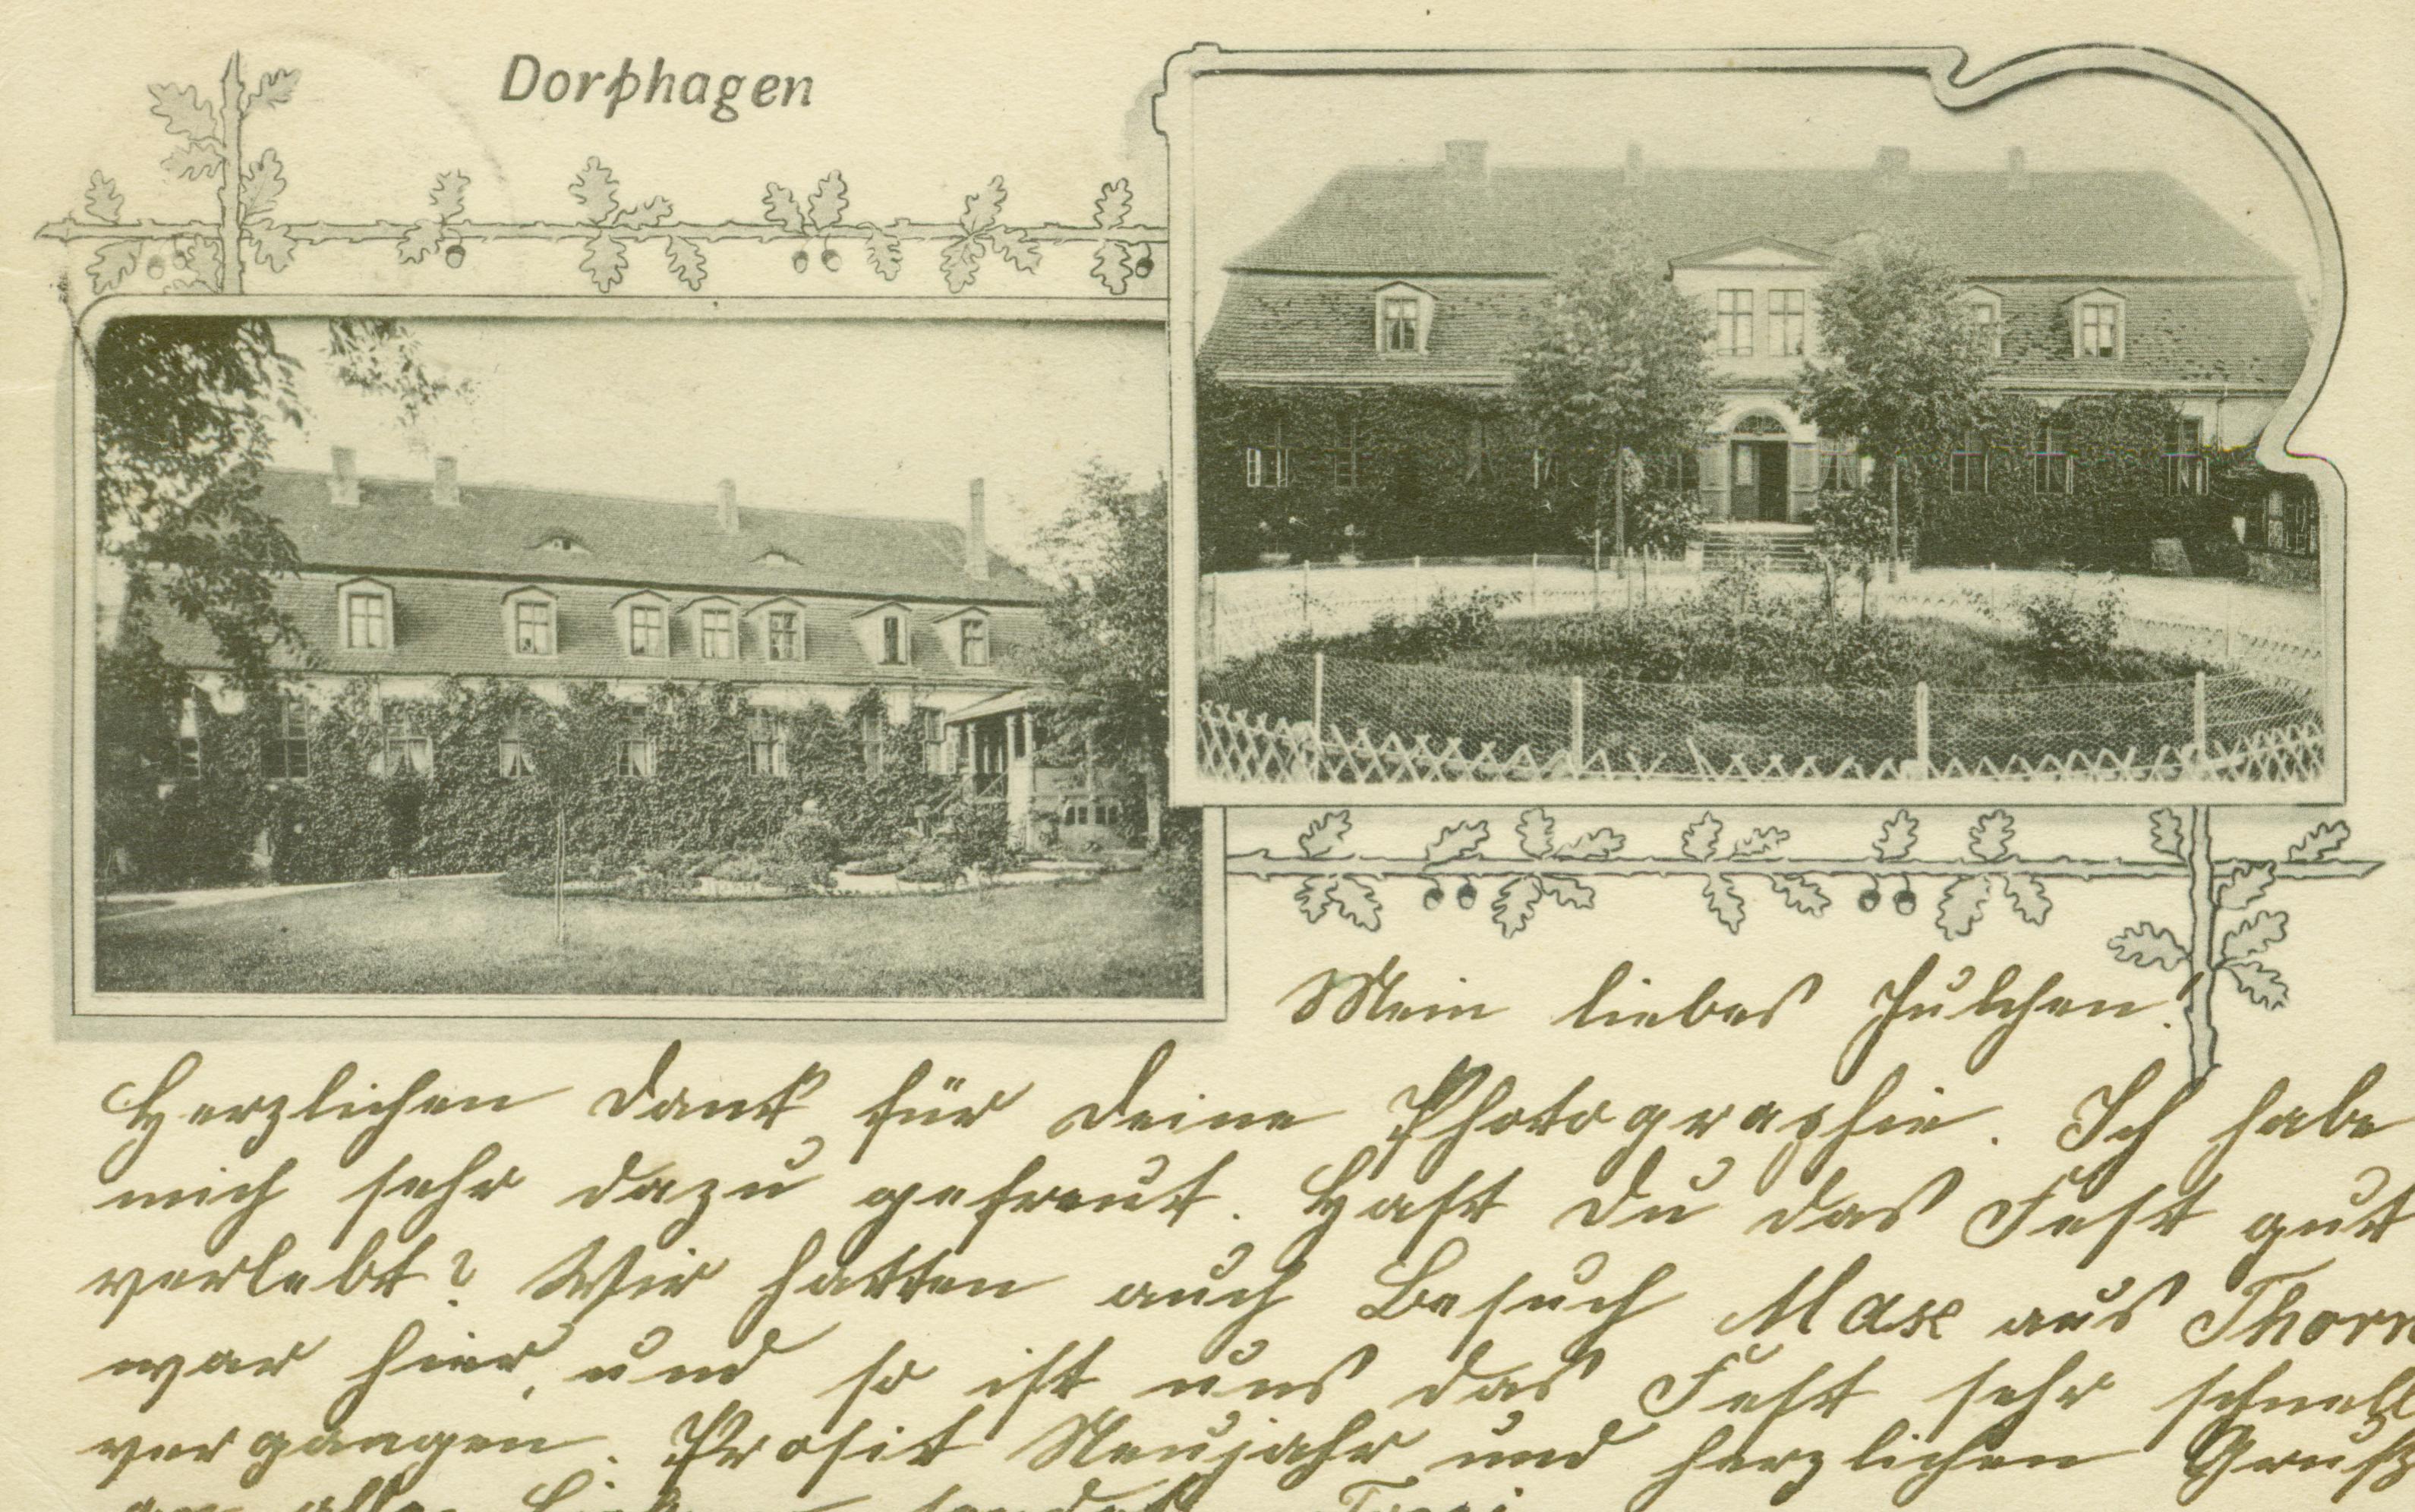 Dorphagen
Mein liebes Julchen!
Herzlichen Dank für Deine Photographie. Ich habe
mich sehr dazu gefreut. Hast Du das Fest gut
verlebt? Wir hatten auch Besuch Max aus Thorn
war hier, und so ist uns das Fest sehr schnell
vergangen. Prosit Neujahr und herzlichen Gruß
an alle Lieben sendet